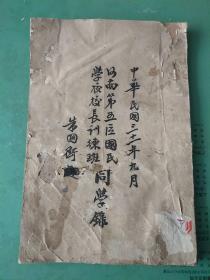 中華民國三十二年九月
河南第五區國民
學校校長訓練班同學錄